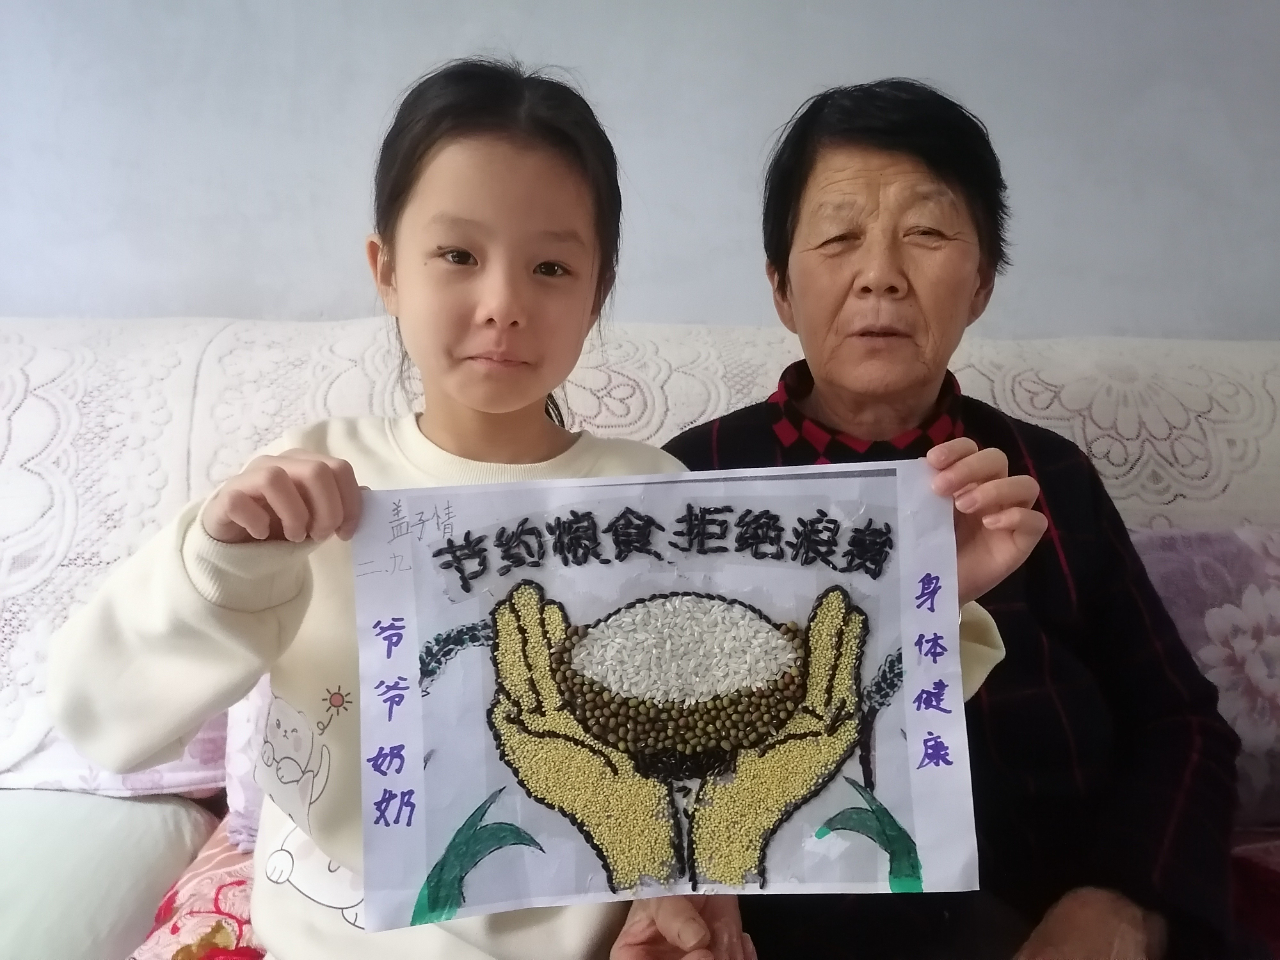 盖子情
二.九
节约粮食拒绝浪费
爷爷奶奶
身体健康